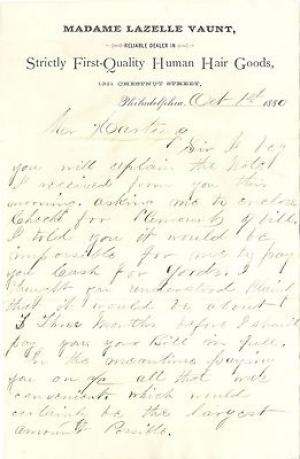 MADAME LAZELLE VAUNT,
RELIABLE DEALER IN
Strictly First-Quality Human Hair Goods,
CHESTNUT STREET,
Philadelphia, Oct 1st 1880
Sir I beg
you will explain the Note
I received from you this
morning. asking me to enclose
Check for Amount of bill.
I told you it would be
impossible for me to pay
you Cash for Goods. I
thought you understood
that it would be about
Three Months before I should
pay you your Bill in full.
In the meantime paying
you on all that was
convenient. which would
certainly be the largest
amount Possible.